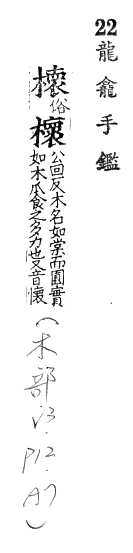 22 龍龕手鑑
櫰俗櫰公回反木名如棠而圓實
如木瓜食之多力也又音懷
(木部 .P12.A7)